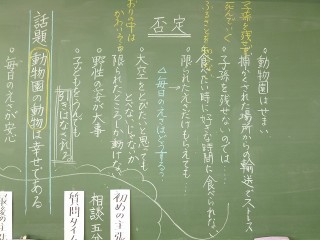 否定
・動物園はせまい
・捕かくされた場所からの輸送でストレス
子孫を残して
死んでいく
・子孫を残せないのでは……
・食べたい時に好きな時間に食べられない
・限られたえさだけもらえても…
△毎日のえさはどうする?
・大空をとびたいと思っても
とべないじゃないか
限られたところしか動けない
・野性の姿が大事
・子どもをうんでも
引きはなされる
話題 動物園の動物は幸せである
・毎日のえさが安心
初めの主張
相談五分
質問タイム